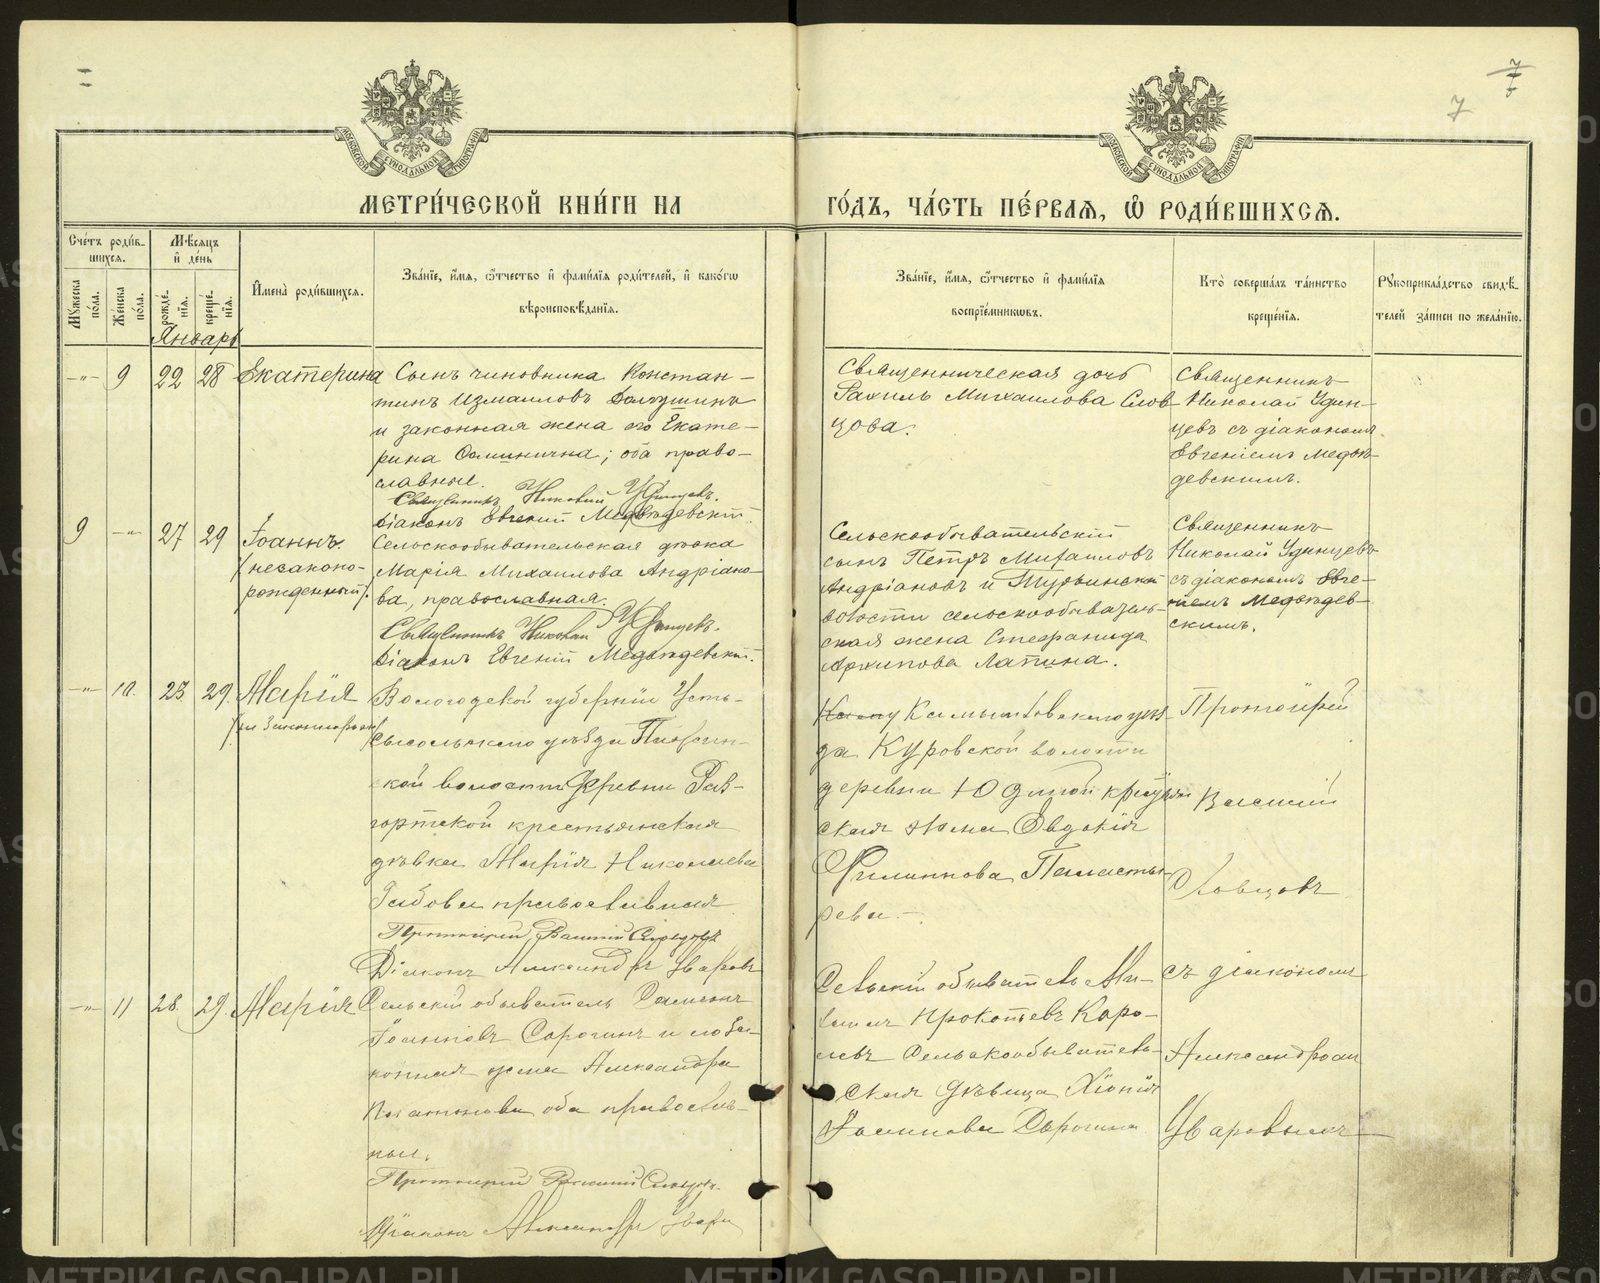 7
7
МЕТРИ́ЧЕСКОЙ КНИ́ГИ НА
ГО́ДЪ, ЧА́СТЬ ПЕ́РВАЯ, Ѽ РОДИ́ВШИХСЯ.
Сче́тъ роди́вшихся.
Мѣ́сяцъ и де́нь
Му́жеска по́ла.
Же́нска по́ла.
рожде́нія.
креще́нія.
Имена̀ роди́вшихся.
Зва́ніе, и́мя, ѻ́тчество и фами́лія роди́телей, и како́гѡ
вѣроисповѣ́данія.
Зва́ніе, и́мя, ѻ́тчество и фами́лія
воспріе́мниковъ.
Кто̀ соверша́лъ та́инство
креще́нія.
Рукоприкла́дство свидѣ́телей за́писи по жела́нію.
Январь
-"- 9 22 28 Екатерина
Сынъ чиновника Констан-
тинъ Измаиловъ
и законная жена его Екате-
рина ; оба право-
славные.
Священникъ Николай Удинцевъ.
Діаконъ Евгеній Медвѣдевскій.
Священническая дочь
Рахиль Михаилова Слов
цова.
Священникъ
Николай Удин-
цевъ съ діакономъ
Евгеніемъ Медвѣ-
девскимъ.
9 -"- 27 29 Іоаннъ.
/незаконо-
рожденный/.
Сельскообывательская дѣвка
Марія Михаилова Андріано-
ва, православная.
Священникъ Николай Удинцевъ.
Діаконъ Евгеній Медвѣдевскій.
Сельскообывательскій
сынъ Петръ Михаиловъ
Андріановъ и Турьинской
волости сельскообыватель-
ская жена Стефанида
Архипова Лапина.
Священникъ
Николай Удинцевъ
съ діакономъ Евге-
ніемъ Медвѣдев-
скимъ.
-"- 10. 23 29. Марія
Вологодской губерніи Усть-
сысольскаго уѣзда
ской волости деревни
крестьянская
дѣвка Марія Николаева
Габова православная
Протоіерей Василій Словцовъ
Діаконъ Александръ Уваровъ
Камышловскаго уѣз-
да Куровской волости
деревни Юдиной крестьян
ская жена Евдокія
Филиппова
рева.-
Протоіерей
Василій
Словцовъ
съ діакономъ
Александромъ
Уваровымъ
-"- 11 28. 29. Марія
Сельскій обыватель Симеонъ
Іоанновъ Сорогинъ и его за-
конная жена Александра
оба православ-
ные.
Протоіерей Василій Словцовъ.
Діаконъ Александръ Уваров
Сельскій обыватель Ми-
хаилъ Прокопьевъ Коро-
левъ Сельскообыватель-
ская дѣвица Хіонія
Іоаннова Сорогина